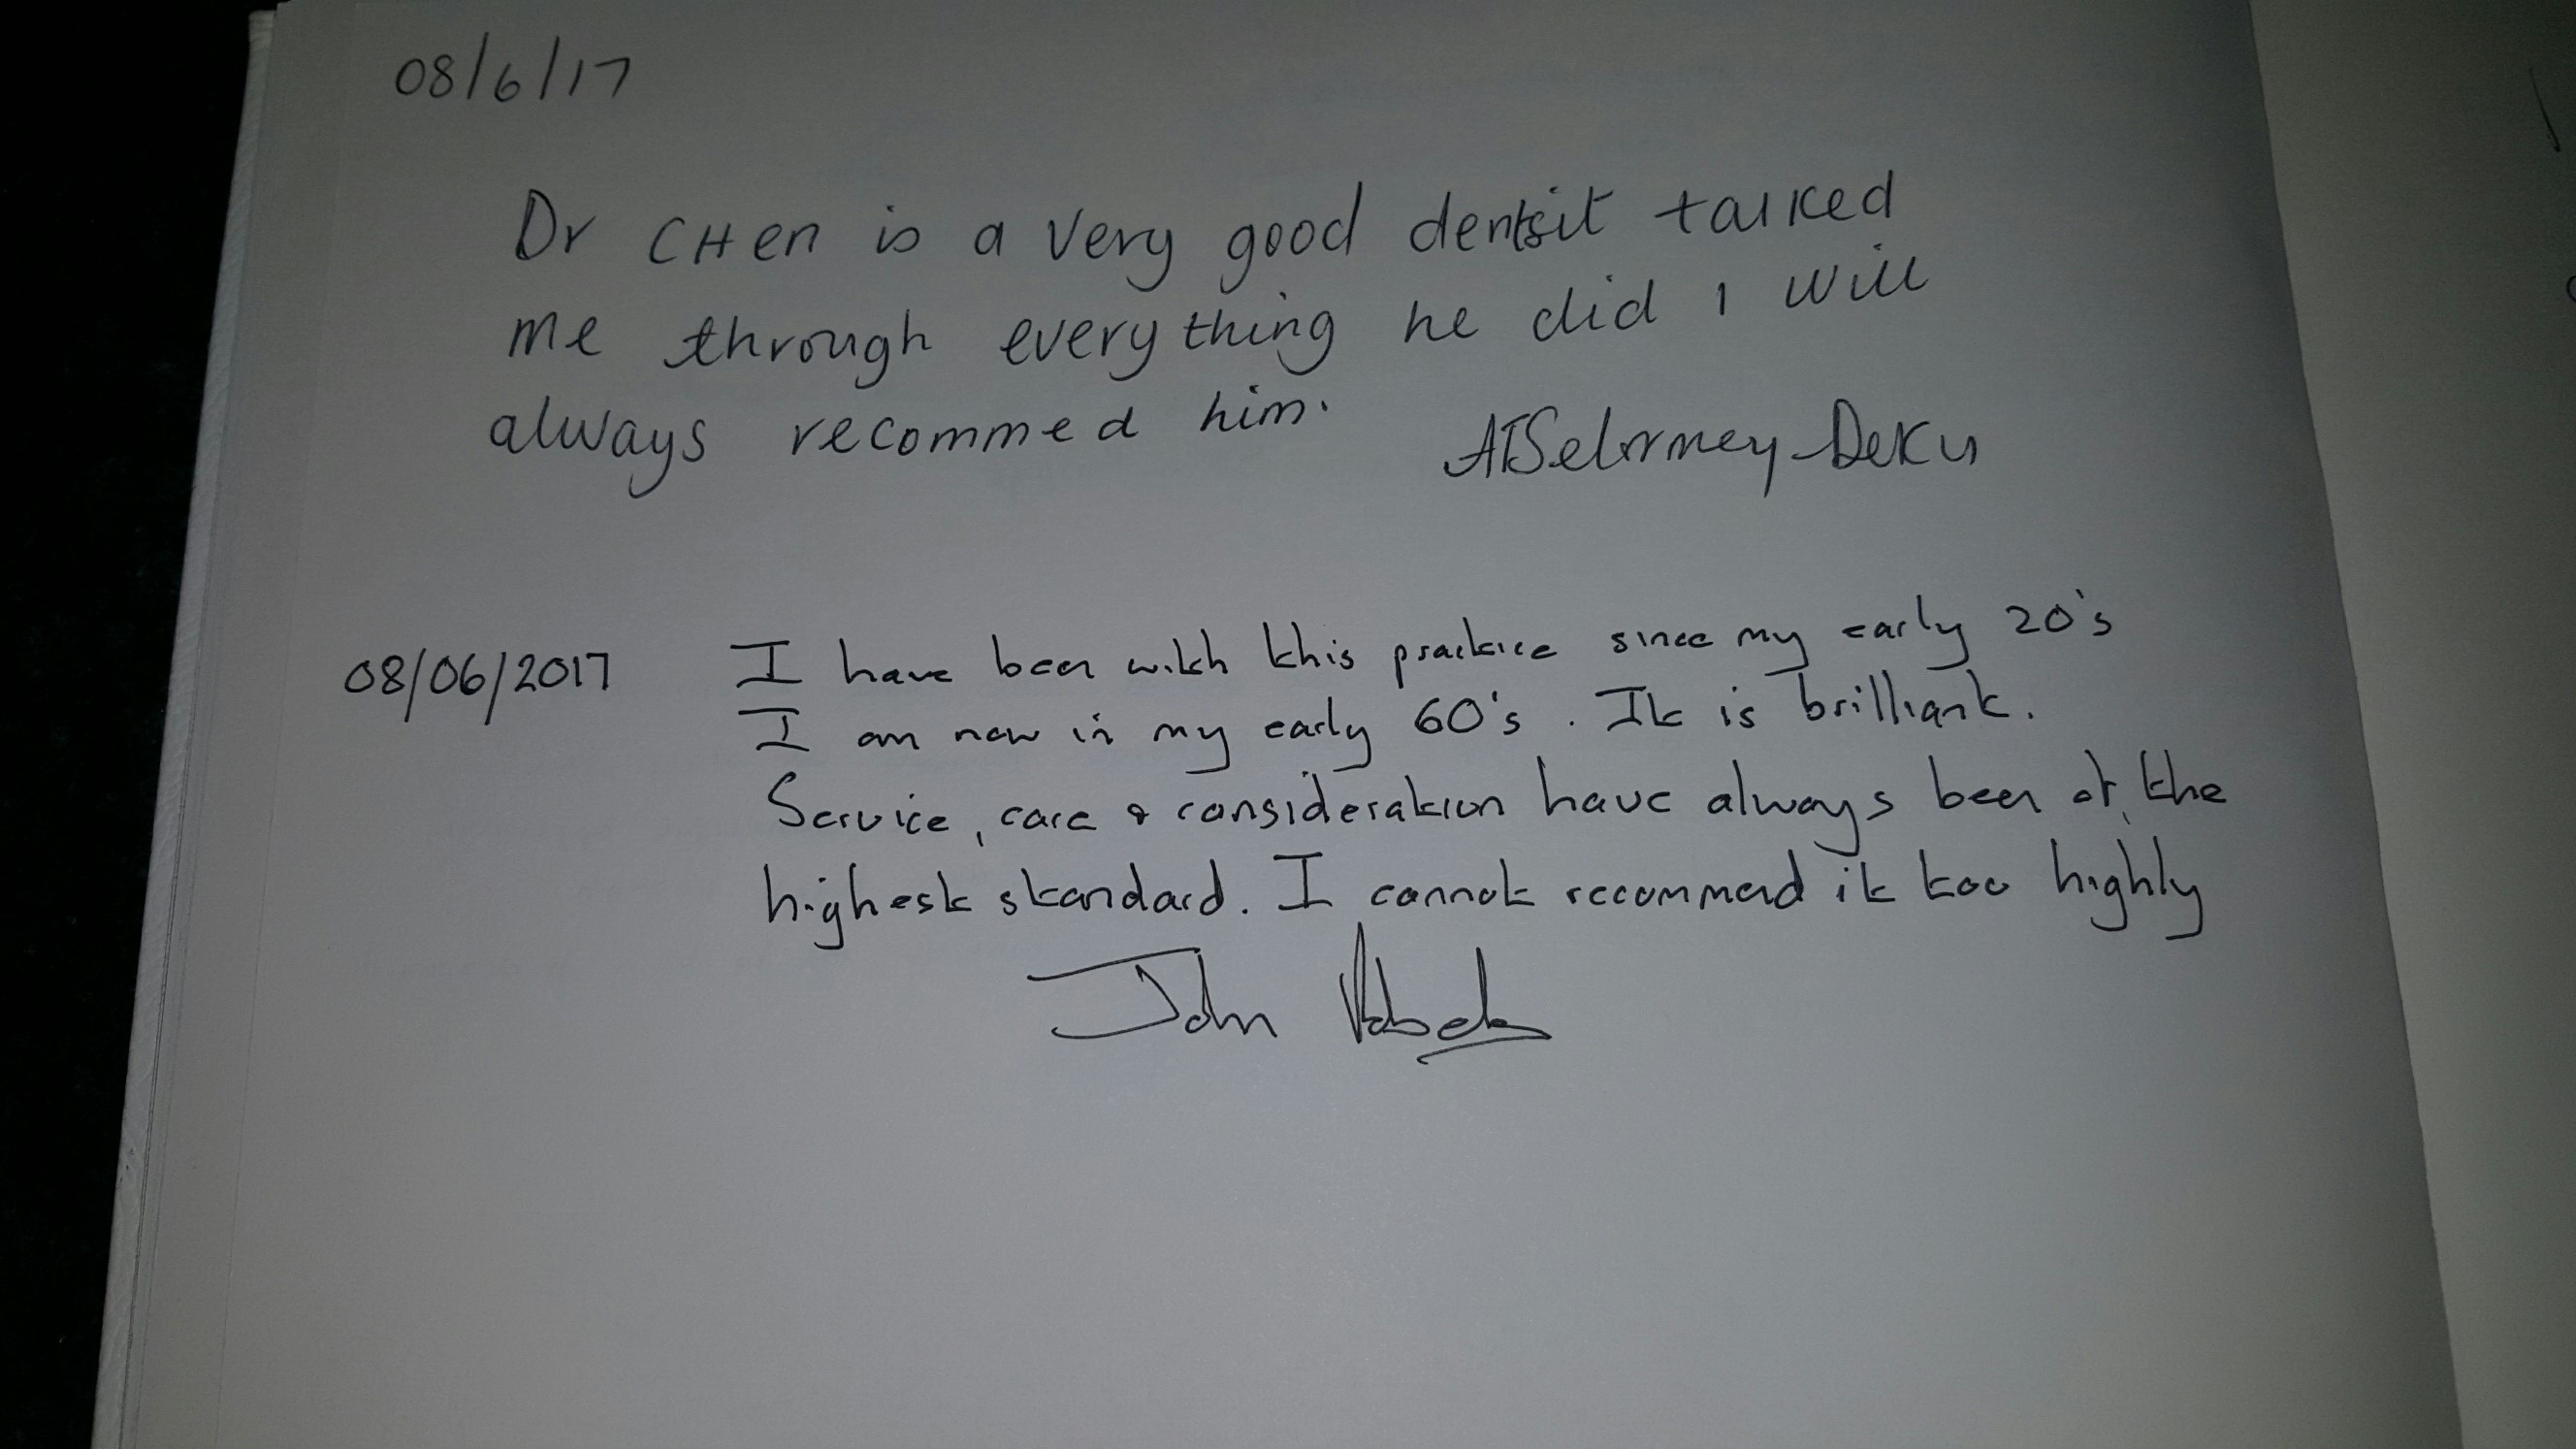 08/6/17
Dr CHen is a very good dentsit talked
me through everything he did I will
always recommed him.
Selormey-Deku
08/06/2017 I have been with this practice since my early 20's
I am now in my early 60's. It is brilliant.
Service, care & consideration have always been of the
highest standard. I cannot recommend it too highly
John